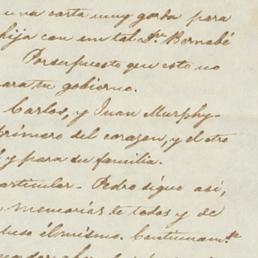 una carta muy gorda para
hija con un tal Sr. Bernabé
Por supuesto que esto no
para tu gobierno.
Carlos, y Juan Murphy-
primero del corazon, y el otro
y para su familia.
particular- Pedro sigue así,
memorias te todos y de
él mismo. Continuam.te